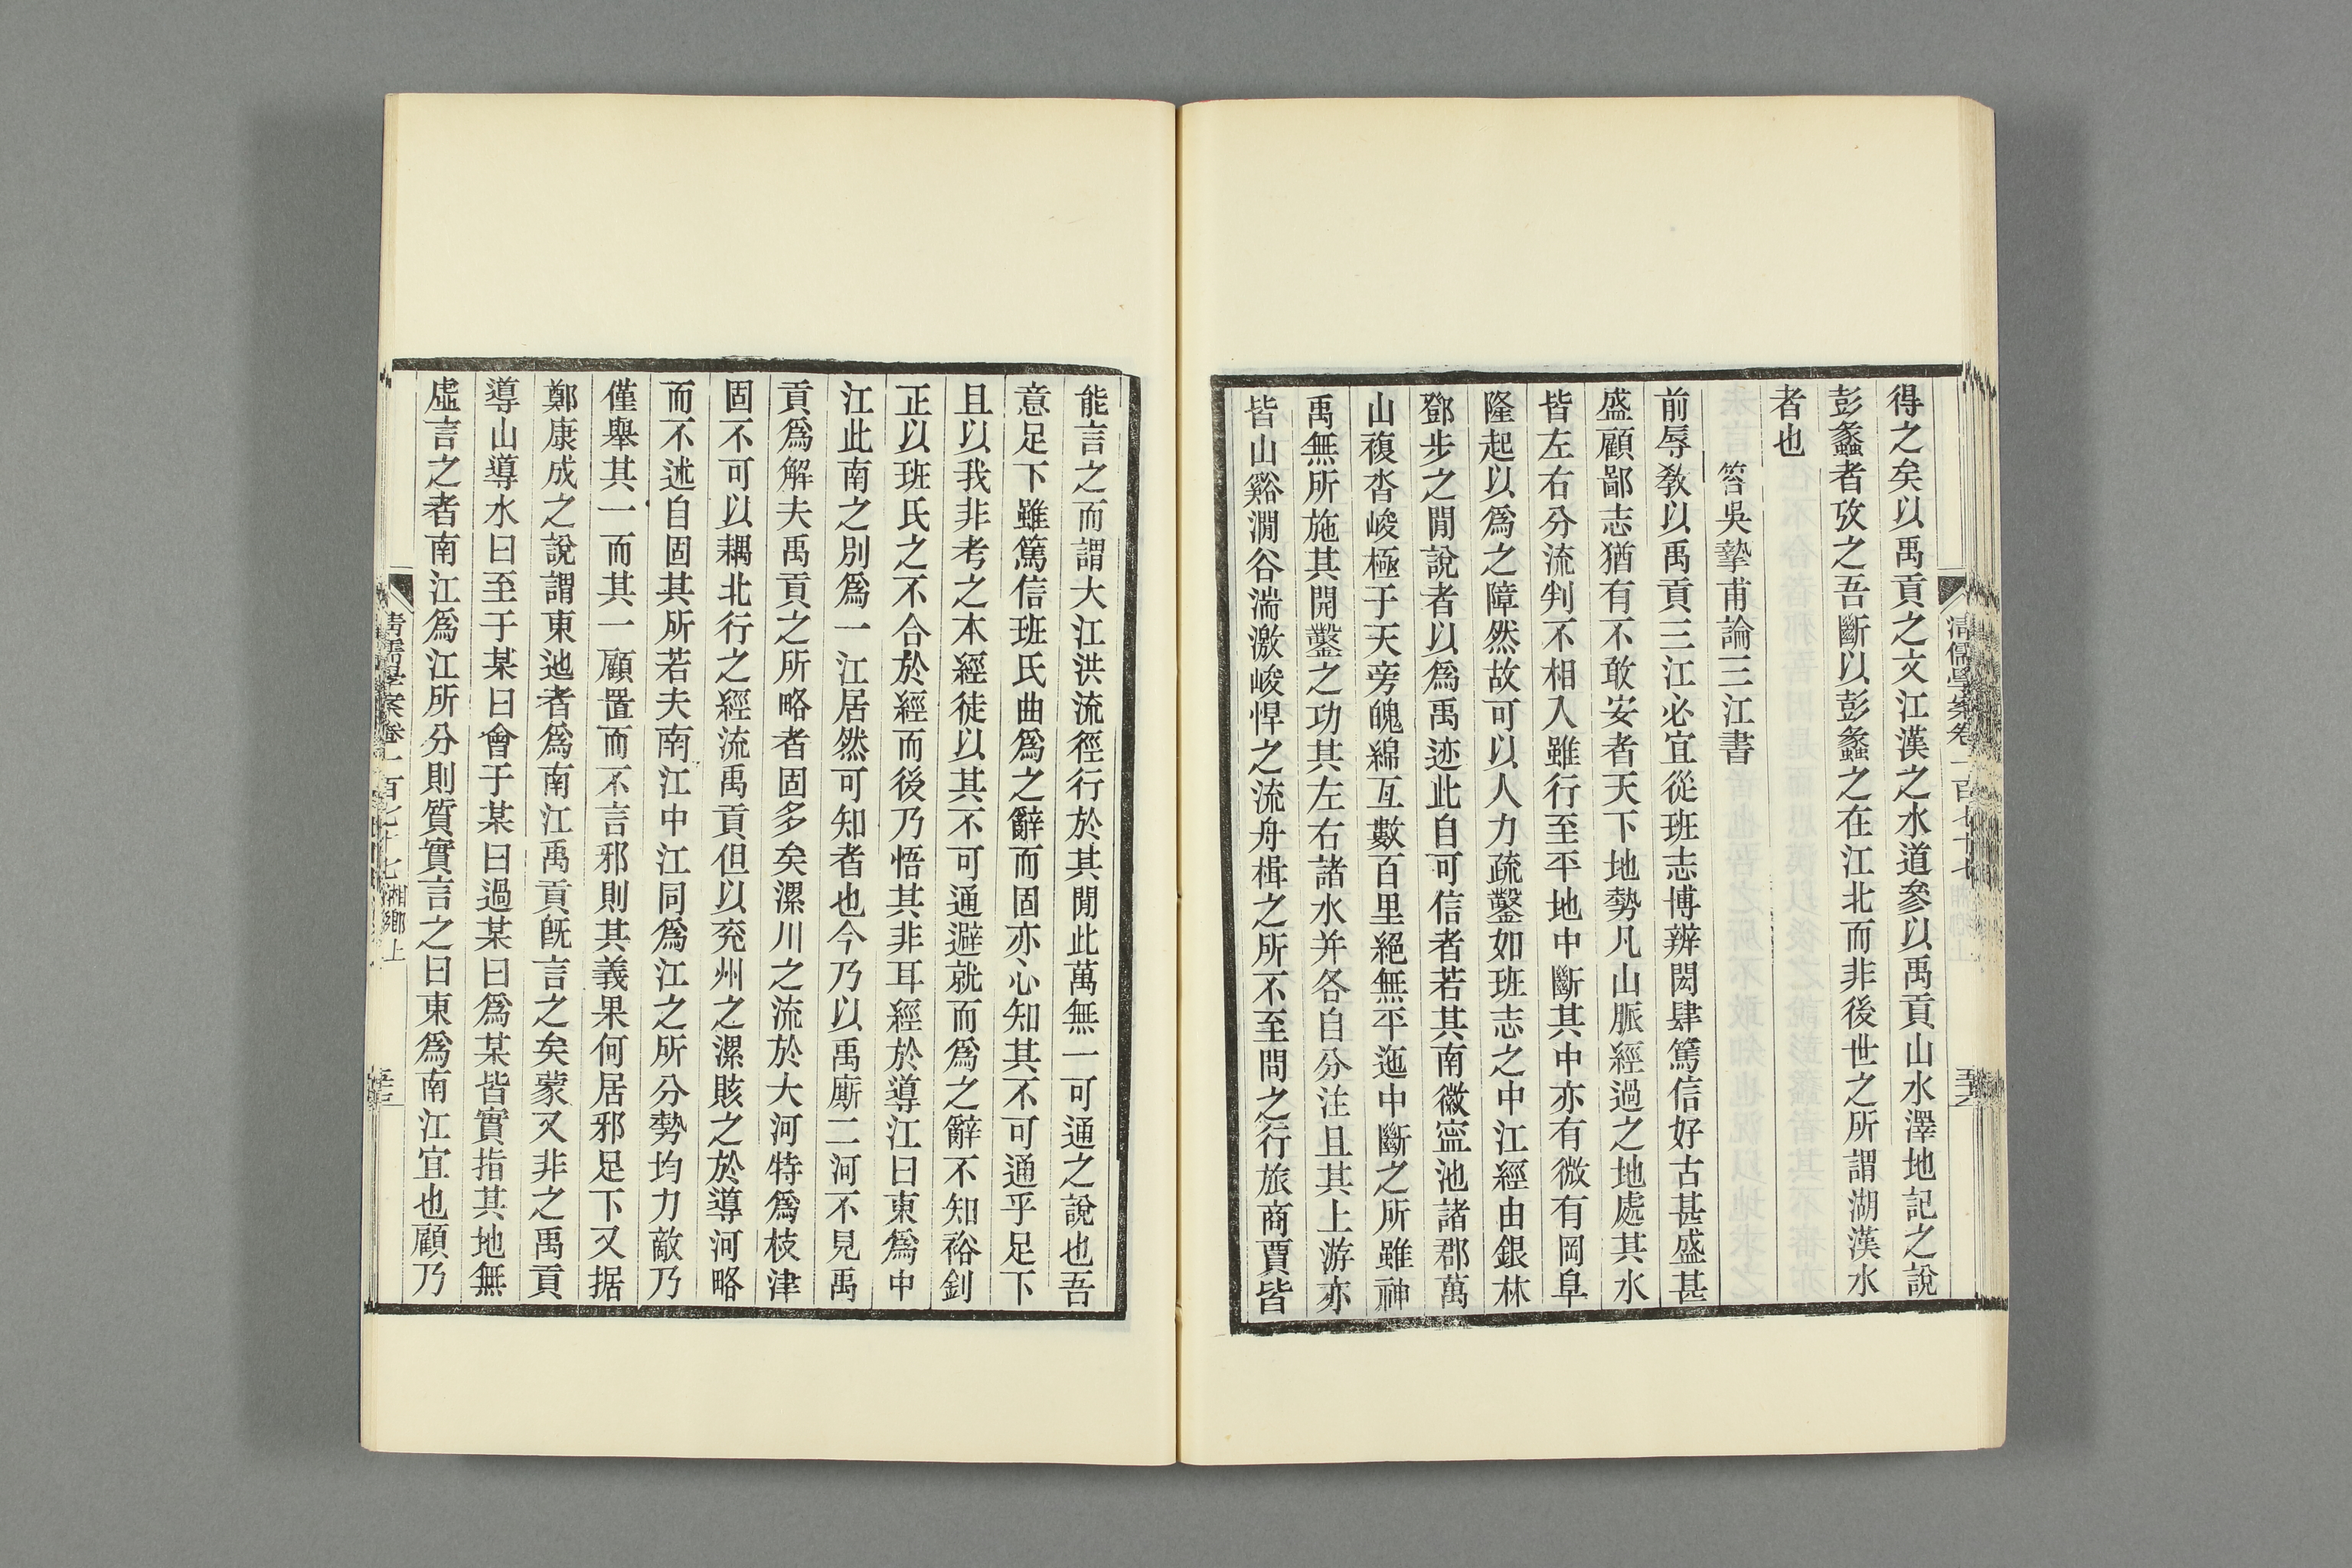 得之矣以禹貢之文江漢之水道參以禹貢山水澤地記之說
彭蠡者攷之吾斷以彭蠡之在江北而非後世之所謂湖漢水
者也
答吳摯甫論三江書
前辱敎以禹貢三江必宜從班志博辨閎肆篤信好古甚盛甚
盛顧鄙志猶有不敢安者天下地勢凡山脈經過之地處其水
皆左右分流判不相入雖行至平地中斷其中亦有微有岡阜
隆起以爲之障然故可以人力疏鑿如班志之中江經由銀林
鄧步之閒說者以爲禹迹此自可信者若其南徽寍池諸郡萬
山複沓峻極于天旁魄綿亙數百里絕無平迤中斷之所雖神
禹無所施其開鑿之功其左右諸水并各自分注且其上游亦
皆山谿澗谷湍激峻悍之流舟楫之所不至問之行旅商賈皆
能言之而謂大江洪流徑行於其閒此萬無一可通之說也吾
意足下雖篤信班氏曲爲之辭而固亦心知其不可通乎足下
且以我非考之本經徒以其不可通避就而爲之辭不知裕釗
正以班氏之不合於經而後乃悟其非耳經於導江曰東爲中
江此南之別爲一江居然可知者也今乃以禹廝二河不見禹
貢爲解夫禹貢之所略者固多矣漯川之流於大河特爲枝津
固不可以耦北行之經流禹貢但以兖州之漯賅之於導河略
而不述自固其所若夫南江中江同爲江之所分勢均力敵乃
僅舉其一而其一顧置而不言邪則其義果何居邪足下又据
鄭康成之說謂東迆者爲南江禹貢旣言之矣蒙又非之禹貢
導山導水曰至于某曰會于某曰過某曰爲某皆實指其地無
虛言之者南江爲江所分則質實言之曰東爲南江宜也顧乃
清儒學案卷一百七十七 湘鄉上